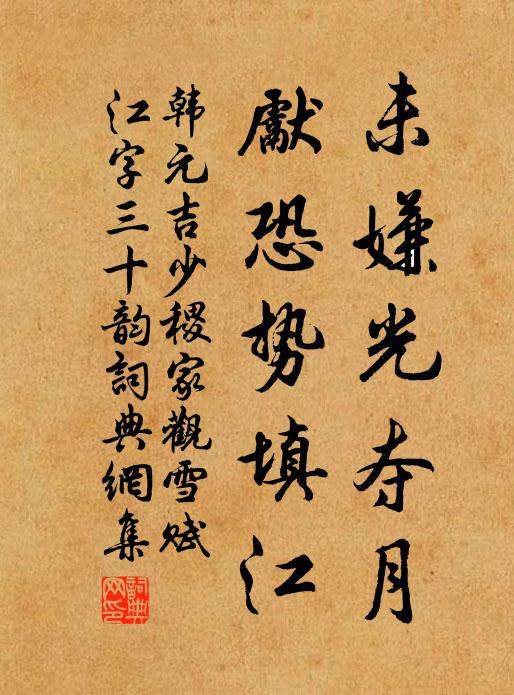 未嫌光夺月
獻恐势填江
韩元吉少稷家觀雪赋
江字三十韵詞典網集
詞典网印